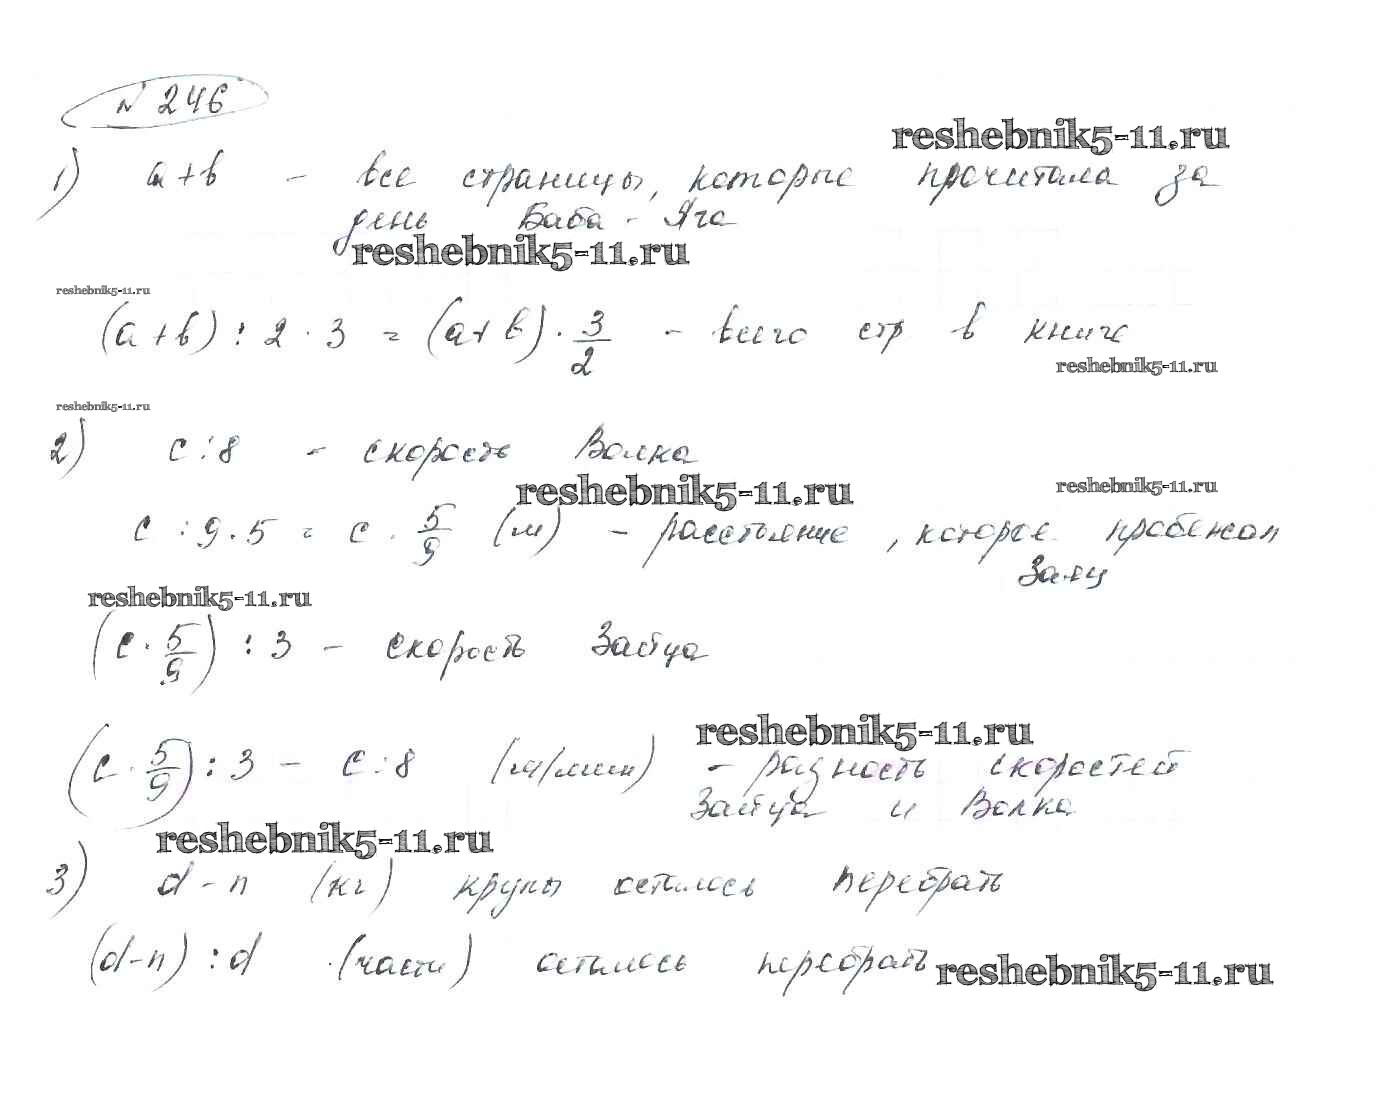 № 246
reshebnik5-11.ru
1) a+b - все страницы, которые прочитала за
день Баба-Яга
reshebnik5-11.ru
reshebnik5-11.ru
(a+b) : 2 · 3 = (a+b) · 3/2 - всего стр в книге
reshebnik5-11.ru
reshebnik5-11.ru
2) c : 8 - скорость Волка
reshebnik5-11.ru
reshebnik5-11.ru
c : 9 · 5 = c · 5/9 (м) - расстояние, которое пробежал
Заяц
reshebnik5-11.ru
(c · 5/9) : 3 - скорость Зайца
reshebnik5-11.ru
(c · 5/9) : 3 - c : 8 (м/мин) - разность скоростей
Зайца и Волка
reshebnik5-11.ru
3) d - n (кг) крупы осталось перебрать
(d-n) : d (части) осталось перебрать
reshebnik5-11.ru